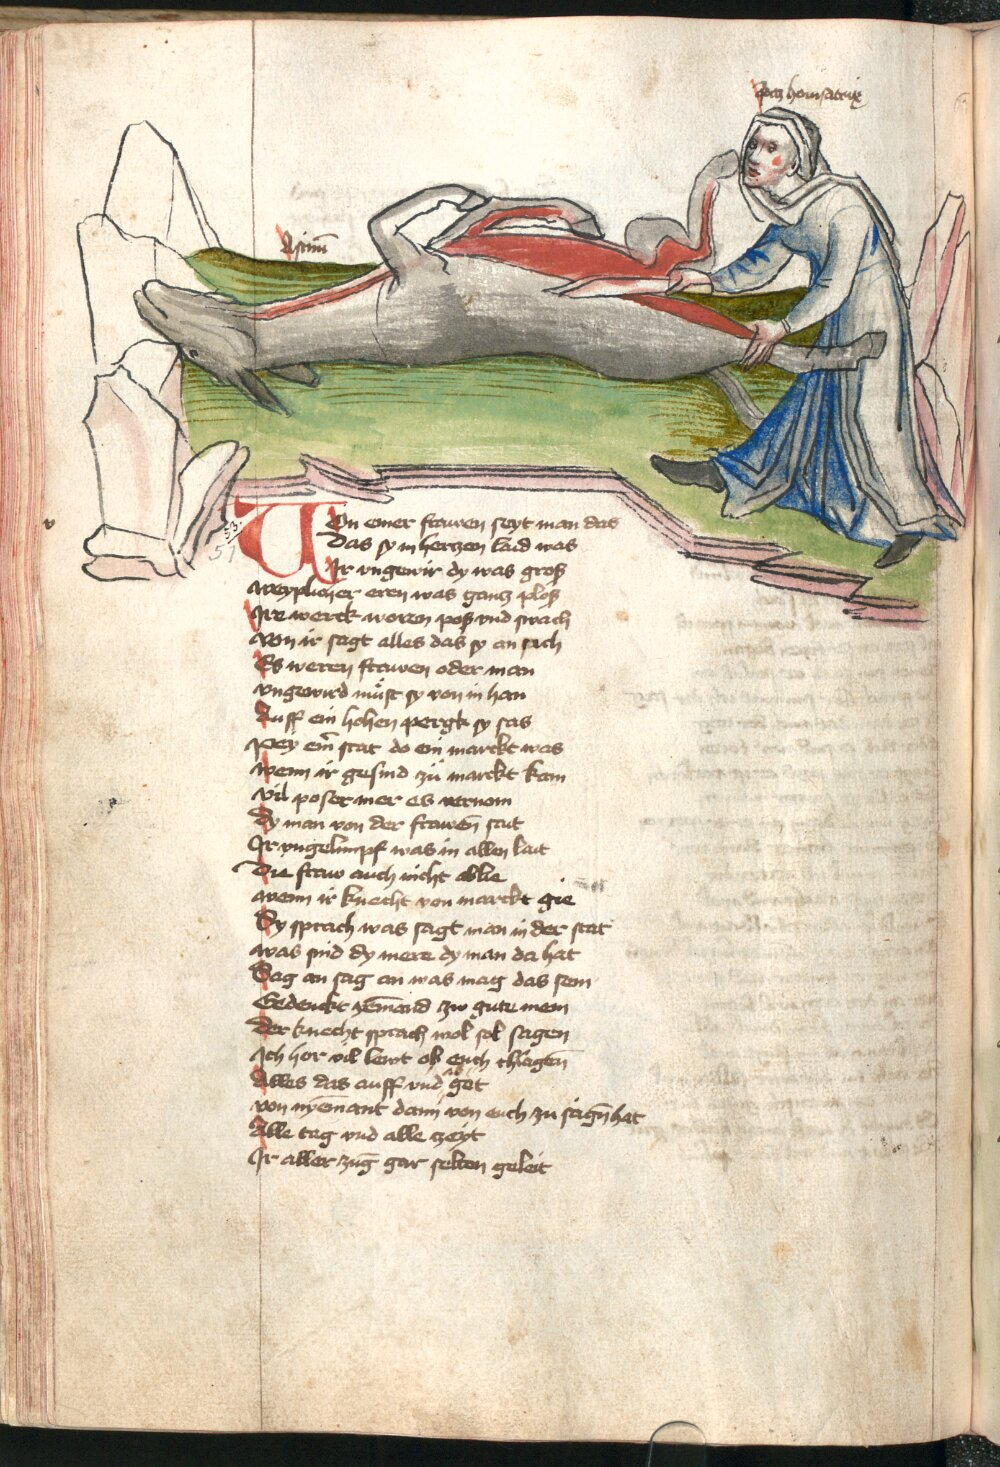 Asinus
Von einer frawen seyt man das
Das sy in hertzen laid was
Ir vngewir dy was groß
weyplicher eren was gantz ploß
Ire werck woren poß vnd swach
Von ir sagt alles das sy an sach
Es weren frawen oder man
vngewird müst sy von in han
Auff ein hohen pergk sy sas
Pey em̅ stat do ein marckt was
wenn ir gesind zu marckt kam
vil poser mer es vernom
Dy man von der frawen̅ sait
Ir vngelimpf was in allen lait
Die fraw auch nicht ablie
wenn ir knecht von marckt gie
Sy sprach was sagt man in der stat
was sind dy mere dy man da hat
Sag an sag an was mag das sein
Gedenckt yem̅and zw gute mein
Der knecht sprach wol sol sagen
Ich hor vil lewt ob euch chlegen̅
Alles das auff vnd ab get
von nyem̅ant dann von euch zu sagn̅ hat
Alle tag vnd alle zeyt
Ir aller zu̅g gar selten geleit
53.
51